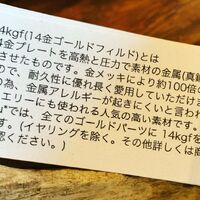 4kgf(14金ゴールドフィルド)とは
金プレートを高熱と圧力で素材の金属(真鍮
させたものです。金メッキにより約100倍の
ので、耐久性に優れ長く愛用していただけま
の為、金属アレルギーが起きにくいと言われ
エリーにも使われる人気の高い素材です。
では、全てのゴールドパーツに 14kgfを
す。(イヤリングを除く。その他詳しくは商
認ください。)